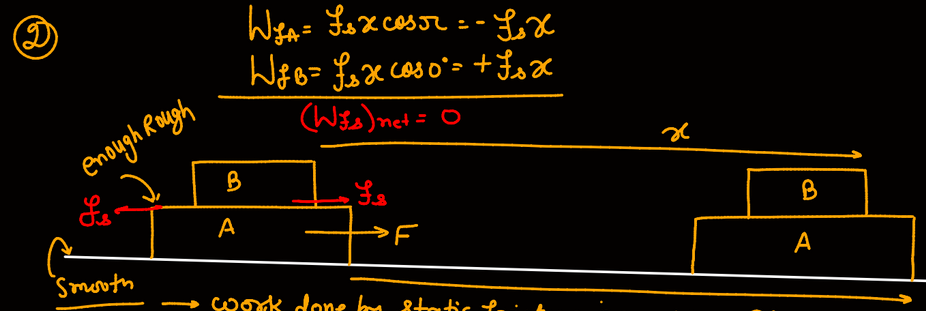 ②
W_fA = f_s x cosπ = - f_s x
W_fB = f_s x cos0° = + f_s x
(W_fs)net = 0
enough Rough
x
B
f_s
f_s
A
F
B
A
Smooth
→ work done by static